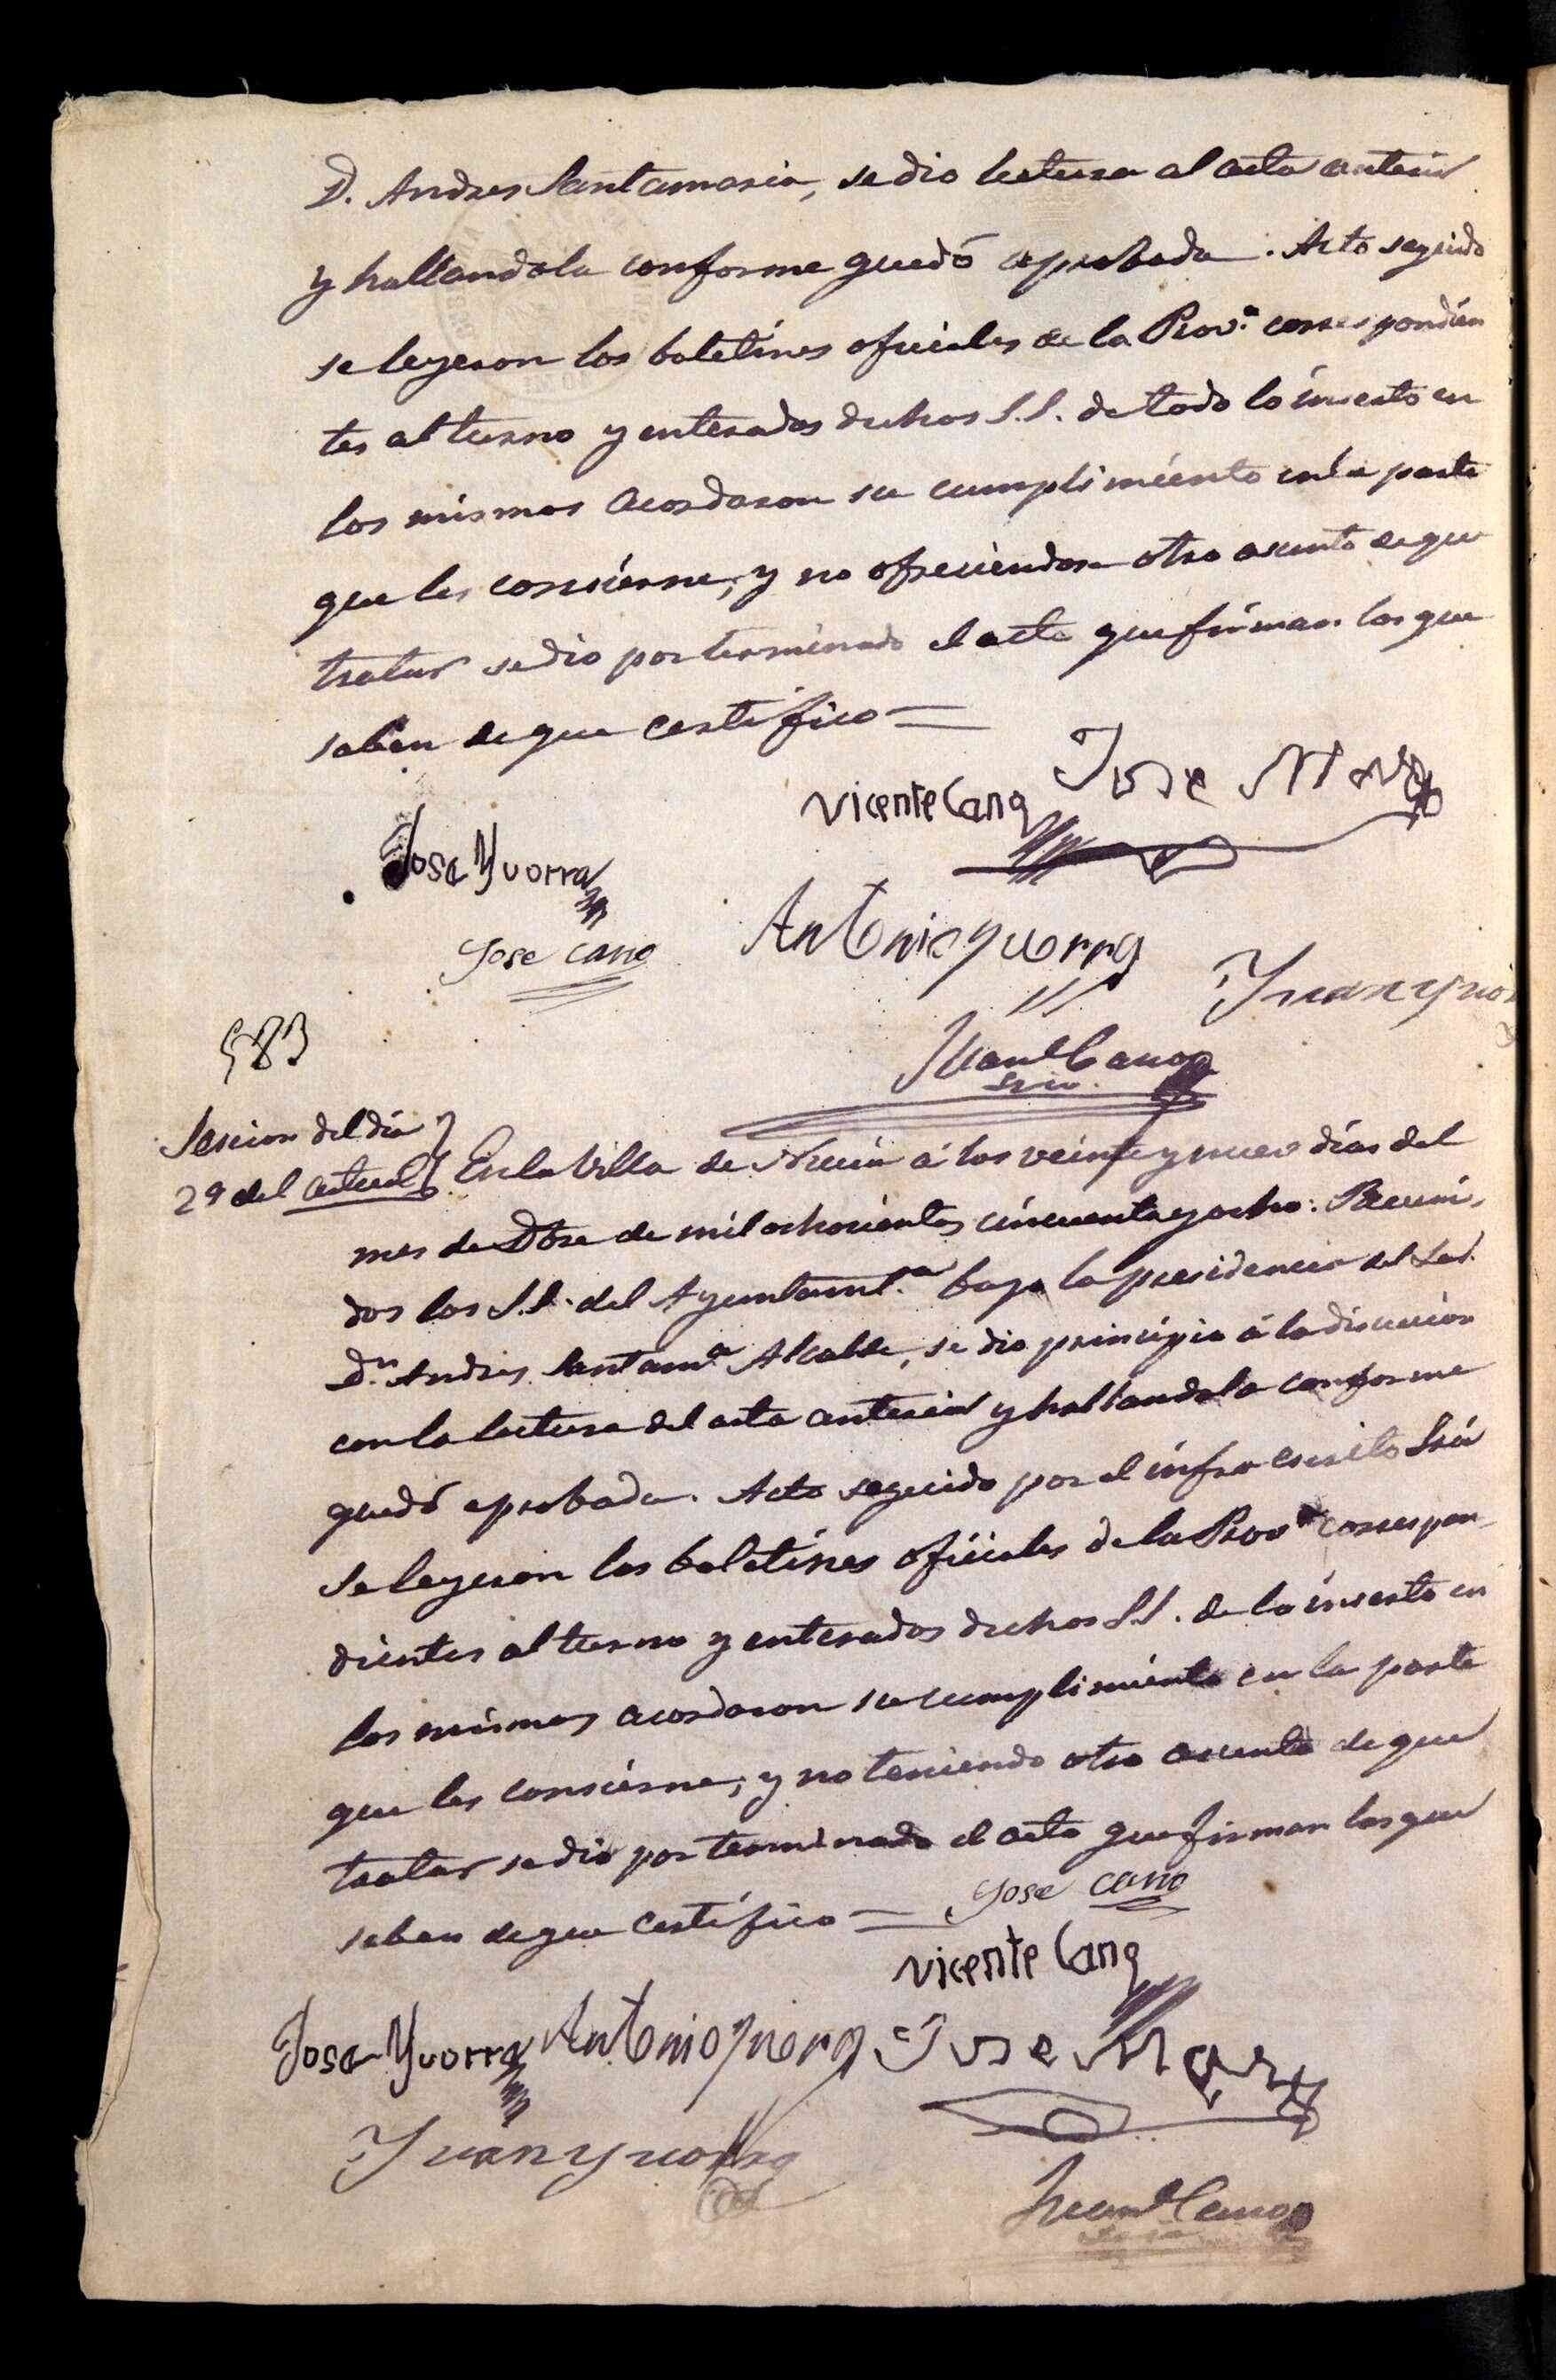 D. Andres Santamaria, se dio lectura al acta anterior
y hallandola conforme quedó aprobada. Acto seguido
se leyeron los boletines oficiales de la Prov.ª correspondien
tes al turno y enterados dichos S.S. de todo lo inserto en
los mismos acordaron su cumplimiento en la parte
que les consierne, y no ofreciendose otro asunto de que
tratar se dio por terminado el acto que firman los que
saben de que certifico =
Vicente Cano Jose Mora
Jose Yvorra
Antonio Yvorra
Jose Cano
Juan Yvor
583
Juan Cano
Srio.
Sesion del dia
29 del actual
En la Villa de Nucia á los veinte y nueve dias del
mes de Dbre de mil ochocientos cincuenta y ocho: Reuni-
dos los S.S. del Ayuntamt.º bajo la presidencia del Sor.
D.n Andres Santam.ª Alcalde, se dio principio á la discucion
con la lectura del acta anterior y hallandola conforme
quedó aprobada. Acto seguido por el infraescrito Srio
se leyeron los boletines oficiales de la Provª correspon-
dientes al turno y enterados dichos S.S. de lo inserto en
los mismos acordaron su cumplimiento en la parte
que les consierne, y no teniendo otro asunto de que
tratar se dio por terminado el acto que firman los que
saben de que certifico = Jose Cano
Vicente Cano
Jose Yvorra Antonio Yvorra Jose Mora
Juan Yvorra
Juan Cano
Srio